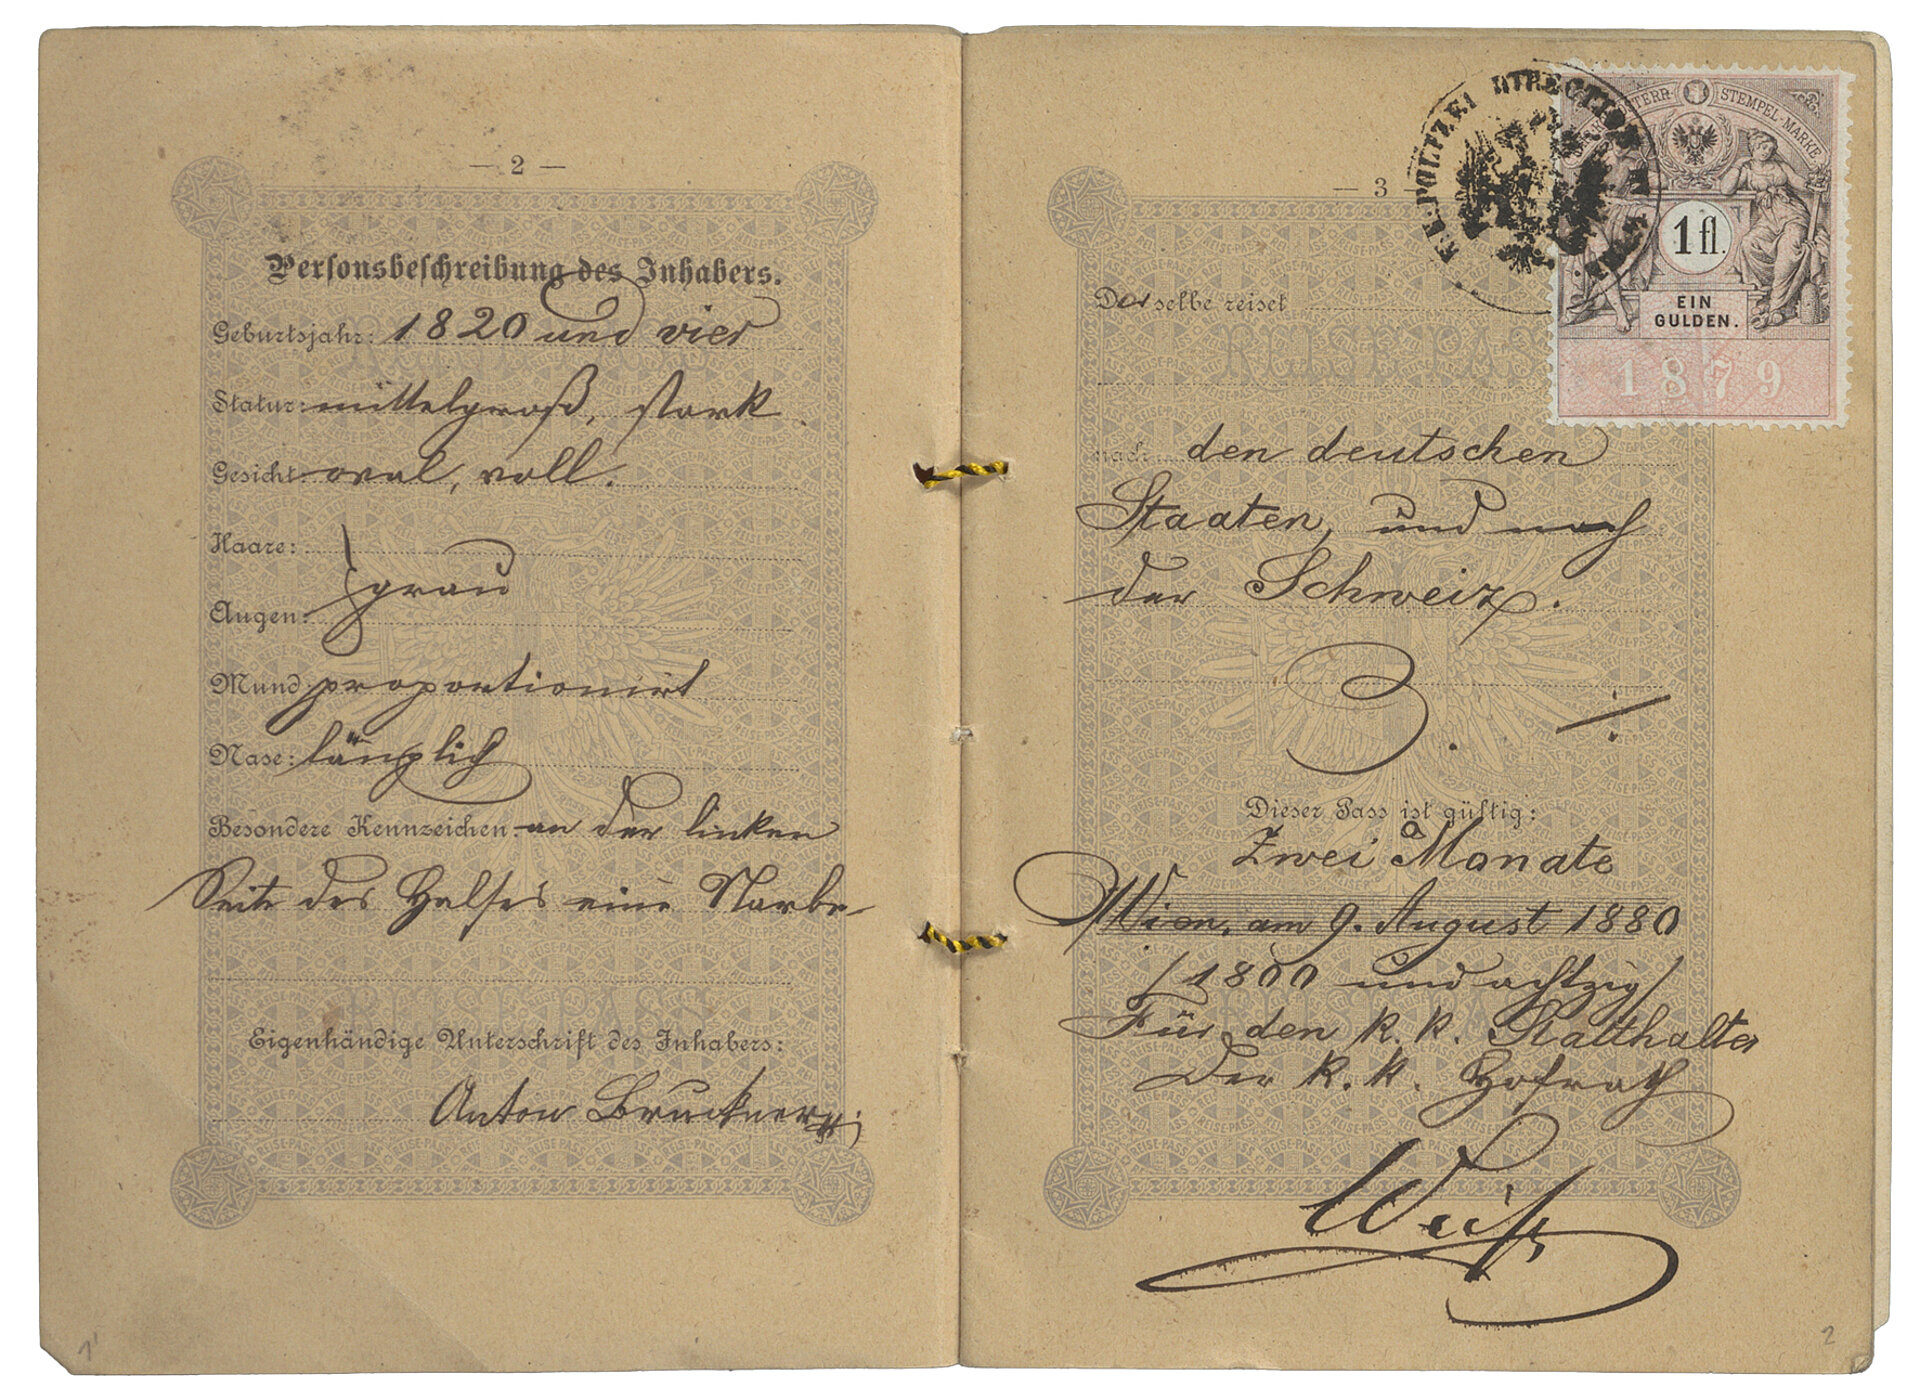 — 2 —
Personsbeschreibung des Inhabers.
Geburtsjahr: 1820 und vier
Statur: mittelgroß, stark
Gesicht: oval, voll.
Haare:
grau
Augen:
Mund proportionirt
Nase: länglich
Besondere Kennzeichen an der linken
Seite des Halses eine Narbe
Eigenhändige Unterschrift des Inhabers:
Anton Bruckner
1'
K.K. POLIZEI DIRECTION IN WIEN
STERR. STEMPEL-MARKE
1 fl.
EIN
GULDEN.
1879
— 3 —
Derselbe reiset
REISE-PASS
nach den deutschen
Staaten, und nach
der Schweiz.
Dieser Pass ist gültig:
Zwei Monate
Wien, am 9. August 1880
/1800 und achtzig/
Für den k. k. Statthalter
Der k. k. Hofrath
2